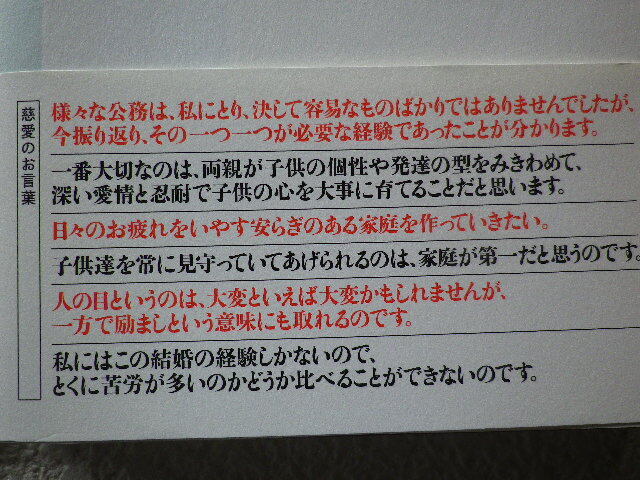 慈愛のお言葉
様々な公務は、私にとり、決して容易なものばかりではありませんでしたが、
今振り返り、その一つ一つが必要な経験であったことが分かります。
一番大切なのは、両親が子供の個性や発達の型をみきわめて、
深い愛情と忍耐で子供の心を大事に育てることだと思います。
日々のお疲れをいやす安らぎのある家庭を作っていきたい。
子供達を常に見守っていてあげられるのは、家庭が第一だと思うのです。
人の目というのは、大変といえば大変かもしれませんが、
一方で励ましという意味にも取れるのです。
私にはこの結婚の経験しかないので、
とくに苦労が多いのかどうか比べることができないのです。